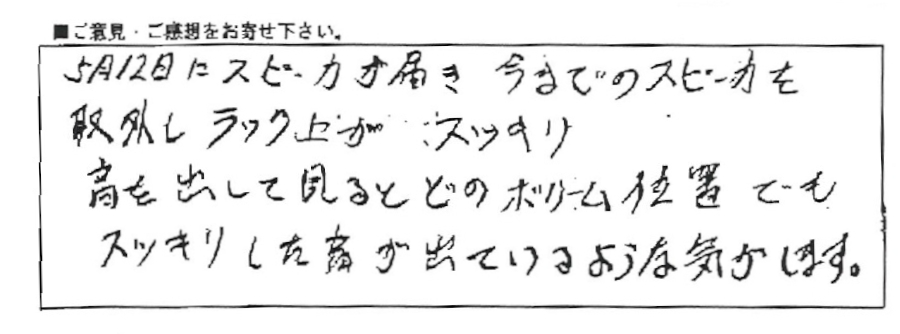 ■ご意見・ご感想をお寄せ下さい。
5月12日にスピーカが届き 今までのスピーカを
取外し ラック上が スッキリ
音を出して見るとどのボリーム位置でも
スッキリした音が出ているような気がします。